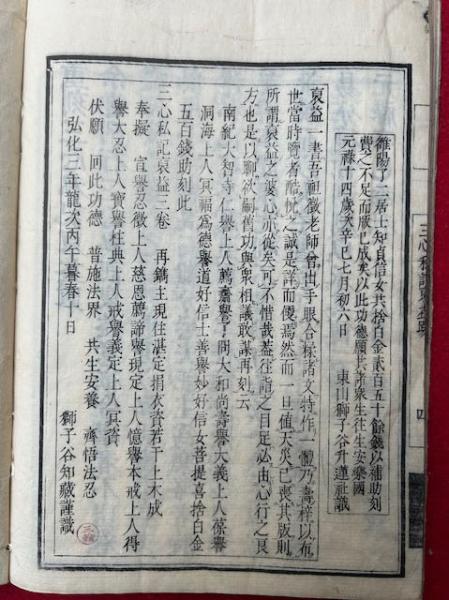 雒陽了二居士知貞信女共捨白金貳百五十餘錢以補助刻
費之不足而厥已成矣以此功德願共諸衆生往生安樂國
元祿十四歲次辛巳七月初六日　東山獅子谷升蓮社識
裒益一書吾祖徵老師曾出手眼合糅諸文特作一體乃壽梓以布
世當時覽者酷忱之誠是詳而優焉然而一旦値天災已喪其版則
所謂裒益之婆心亦從矣可不惜哉蓋往詣之目足必由心行之良
方也是以聊欲嗣舊功與衆相議敢謀再刻云
南紀大智寺仁譽上人薦
大和尚壽譽大義上人葆譽
洞海上人冥福爲德譽道好信士善譽妙好信女菩提喜捨白金
五百錢助刻此
三心私記裒益三卷　再鐫主現住湛定捐衣資若干上木成
奉擬　宣譽忍徵上人慈恩薦諦譽現定上人億譽本戒上人得
譽大忍上人寶譽柱典上人戒譽義定上人冥資
伏願　回此功德　普施法界　共生安養　齊悟法忍
弘化三年龍次丙午暮春十日　獅子谷知藏謹識
三心私記裒益跋
四